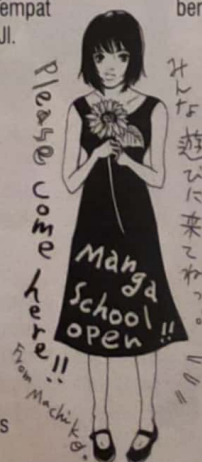 empat
ber
Jl.
Please come here!!
From Machiko.
みんな遊びに来てねっ。
Manga
School
open!!
s